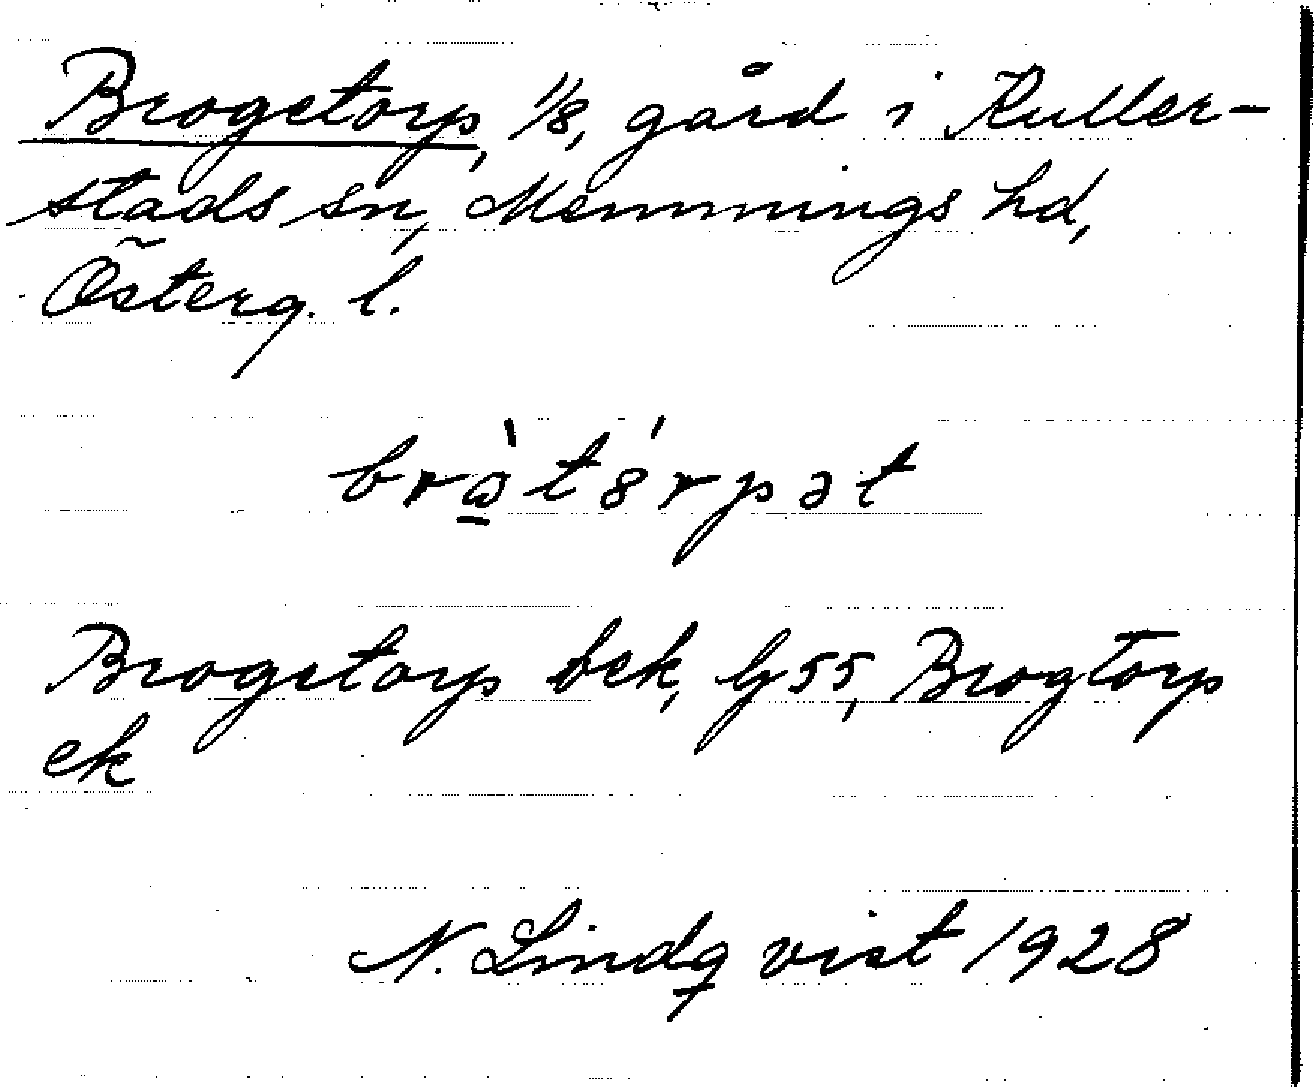 Brogetorp, 1/8, gård i Kuller-
stads sn, Memmings hd,
Österg. l.
Brogetorp bek, G 55, Brogtorp
ek
N. Lindqvist 1928